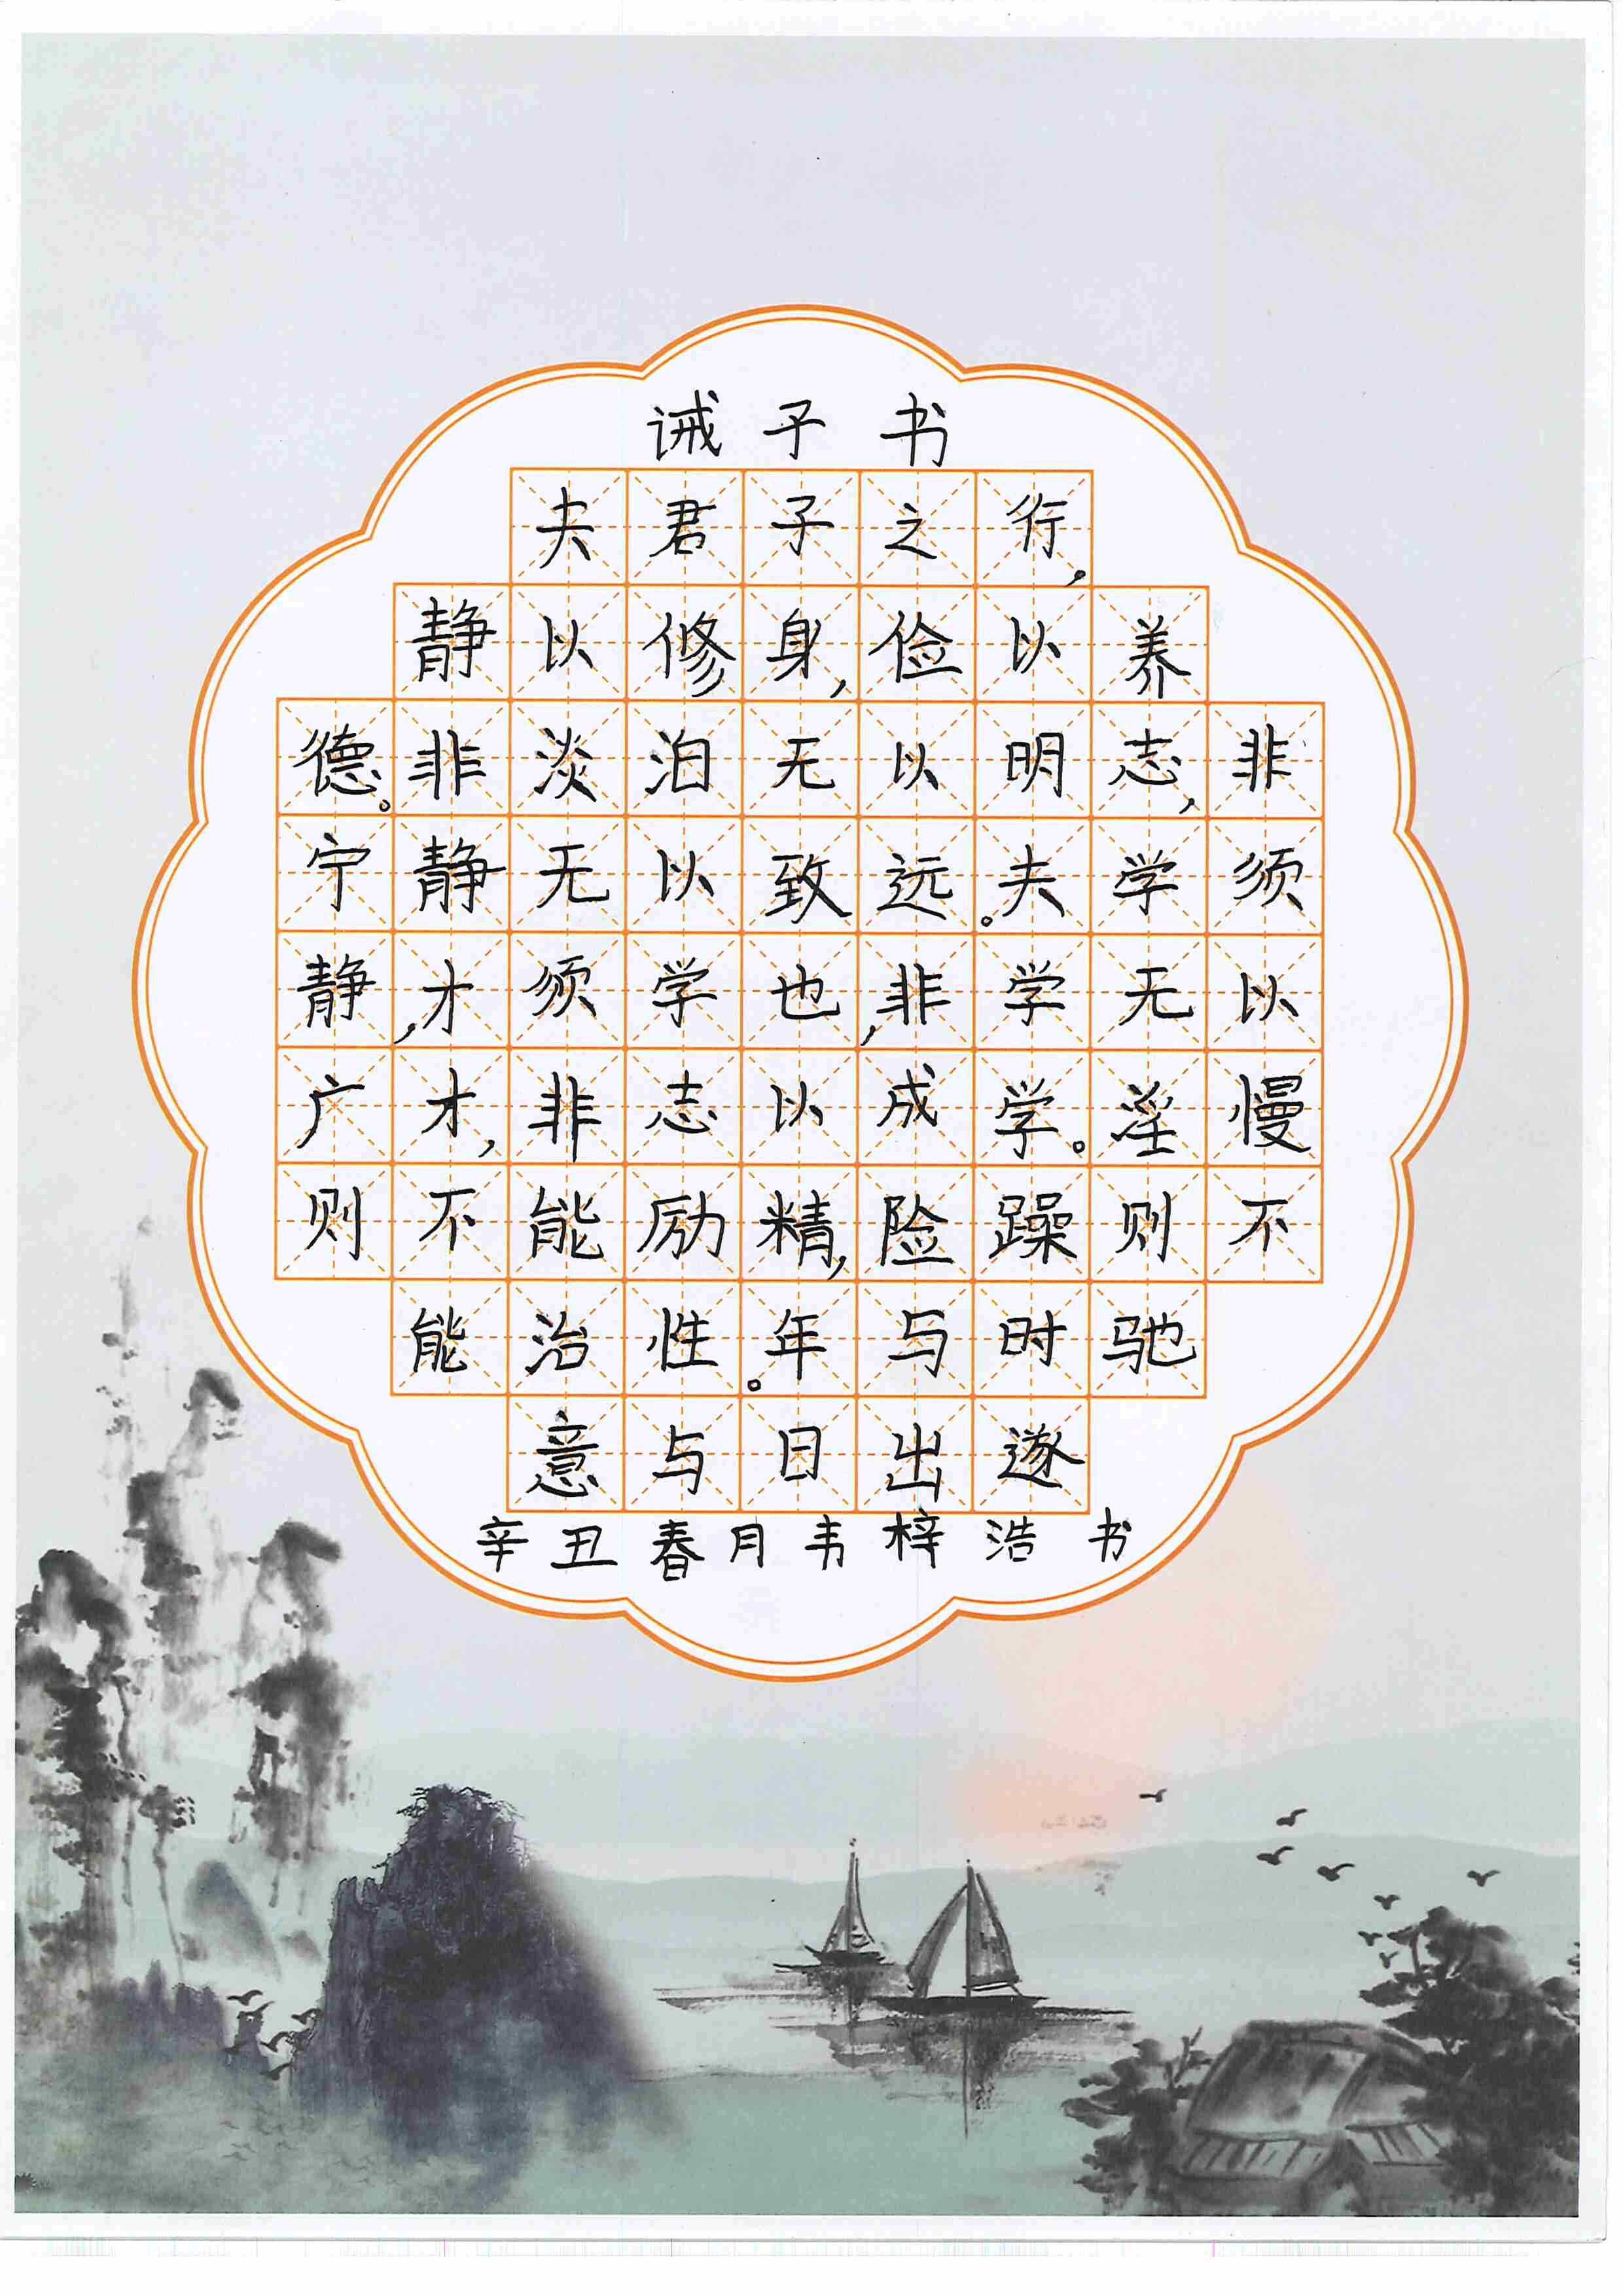 诫子书
夫君子之行,
静以修身,俭以养
德。非淡泊无以明志,非
宁静无以致远。夫学须
静,才须学也,非学无以
广才,非志以成学。淫慢
则不能励精,险躁则不
能治性。年与时驰
意与日出遂
辛丑春月韦梓浩书